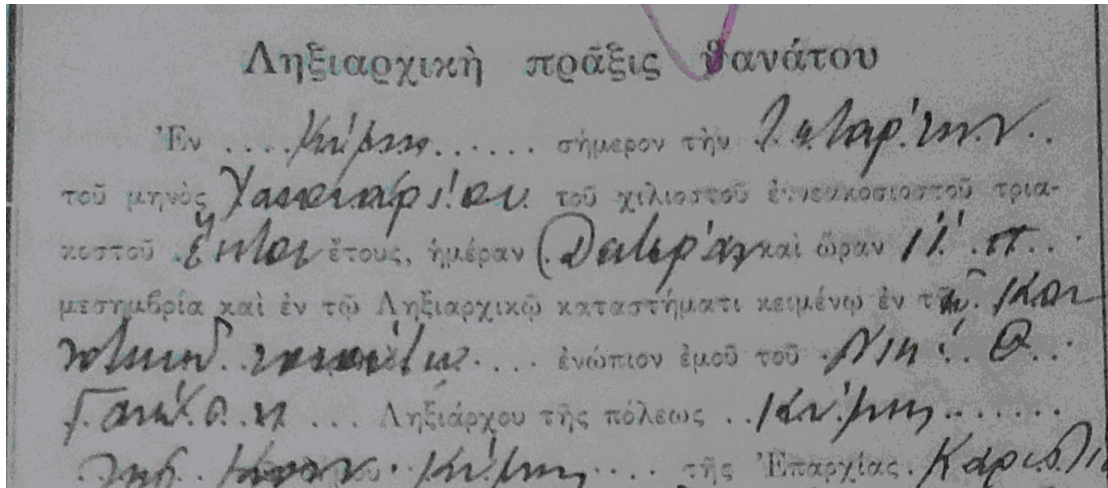 Ληξιαρχικὴ πρᾶξις θανάτου
Ἐν .... Κύμῃ ...... σήμερον τὴν Τετάρτην ..
τοῦ μηνὸς Ἰανουαρίου τοῦ χιλιοστοῦ ἐννεακοσιοστοῦ τρια-
κοστοῦ ἕκτου ἔτους, ἡμέραν Δευτέραν καὶ ὥραν 11 π. ..
μεσημβρία καὶ ἐν τῷ Ληξιαρχικῷ καταστήματι κειμένῳ ἐν τῷ Κοι
νοτικῷ .... ἐνώπιον ἐμοῦ τοῦ Θ...
... Ληξιάρχου τῆς πόλεως .. Κύμης .......
τῆς Κύμης .... τῆς Ἐπαρχίας Καρυστί